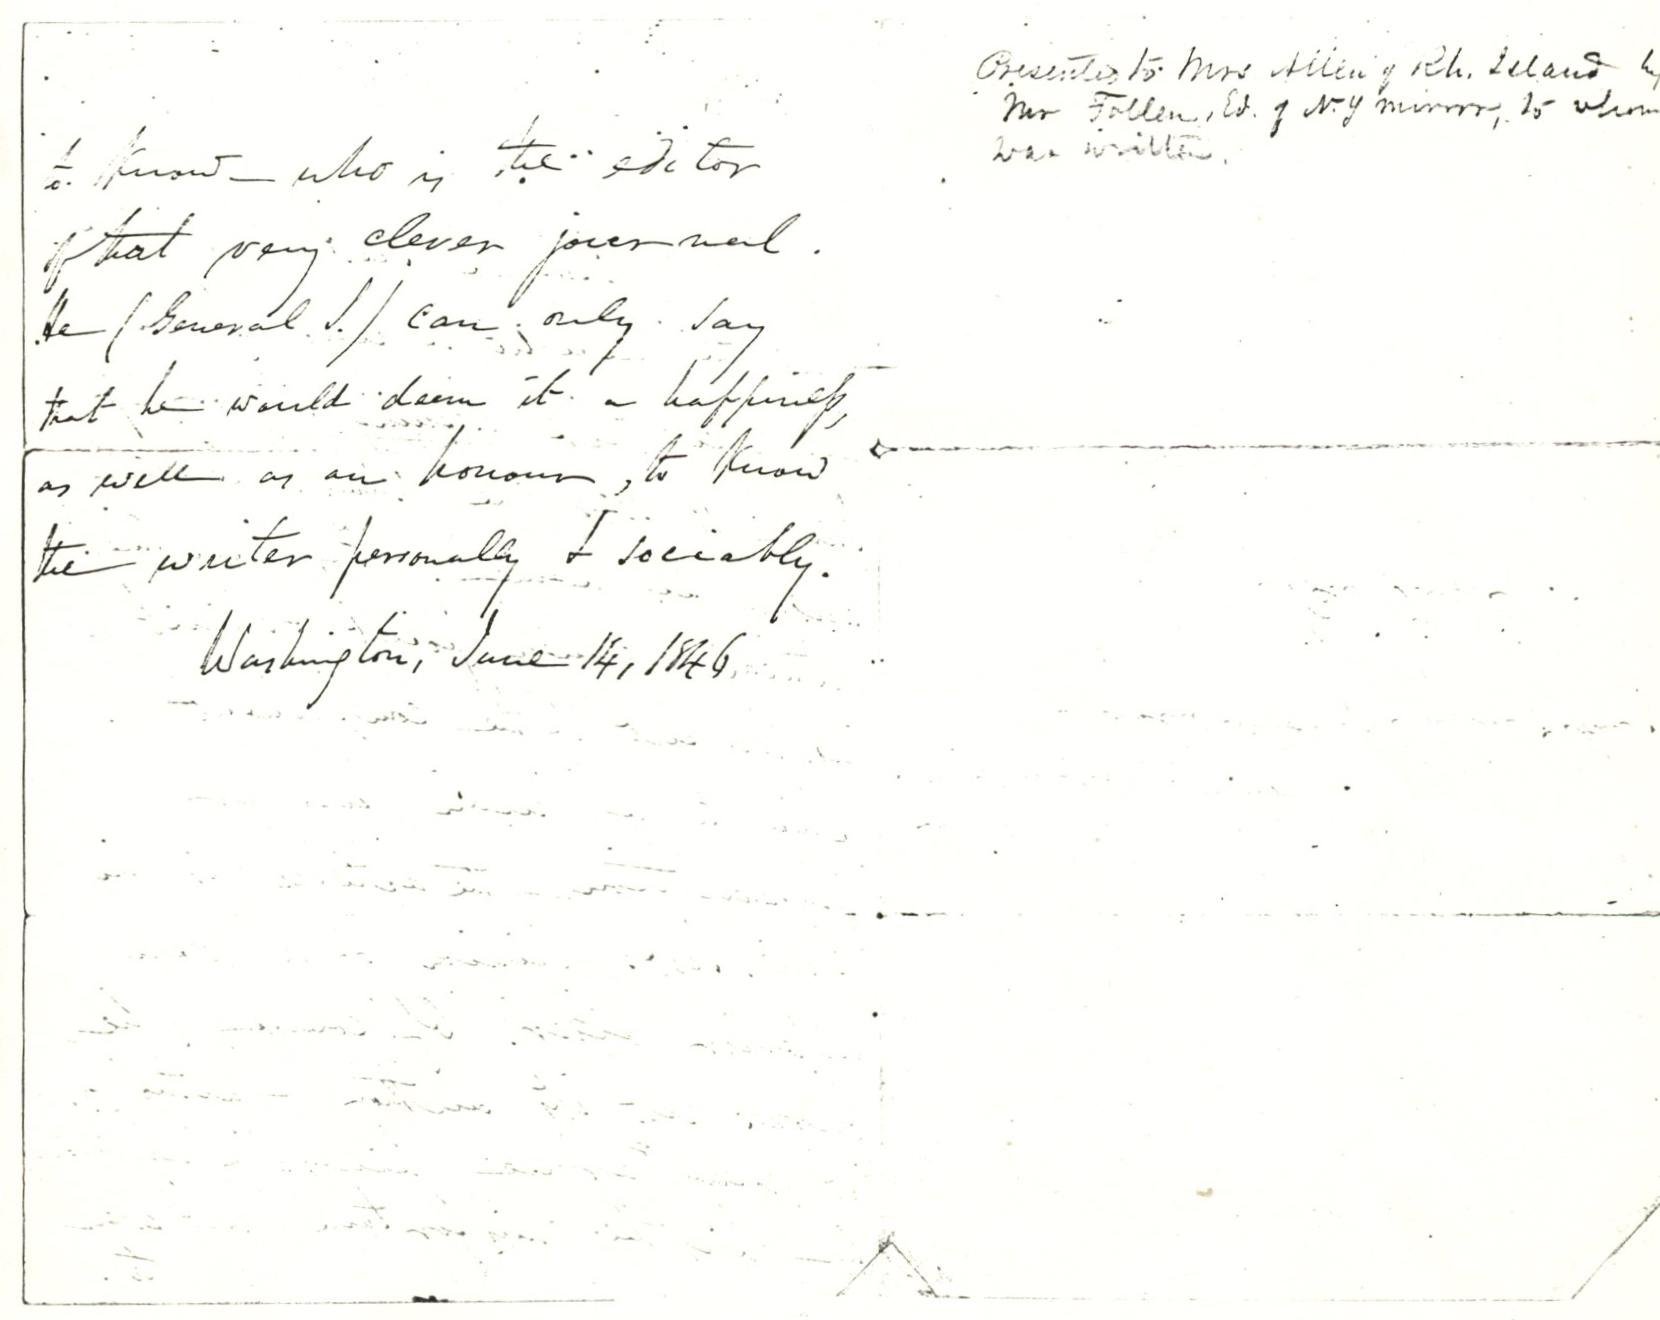 to know— who is the editor
of that very clever journal.
He (General S.) can only say
that he would deem it a happiness,
as well as an honour, to know
the writer personally & sociably.
Washington, June 14, 1846
Presented to Mrs Allen of Rh. Island by
Mr Follen, Ed. of N.Y mirror, to whom
was written.